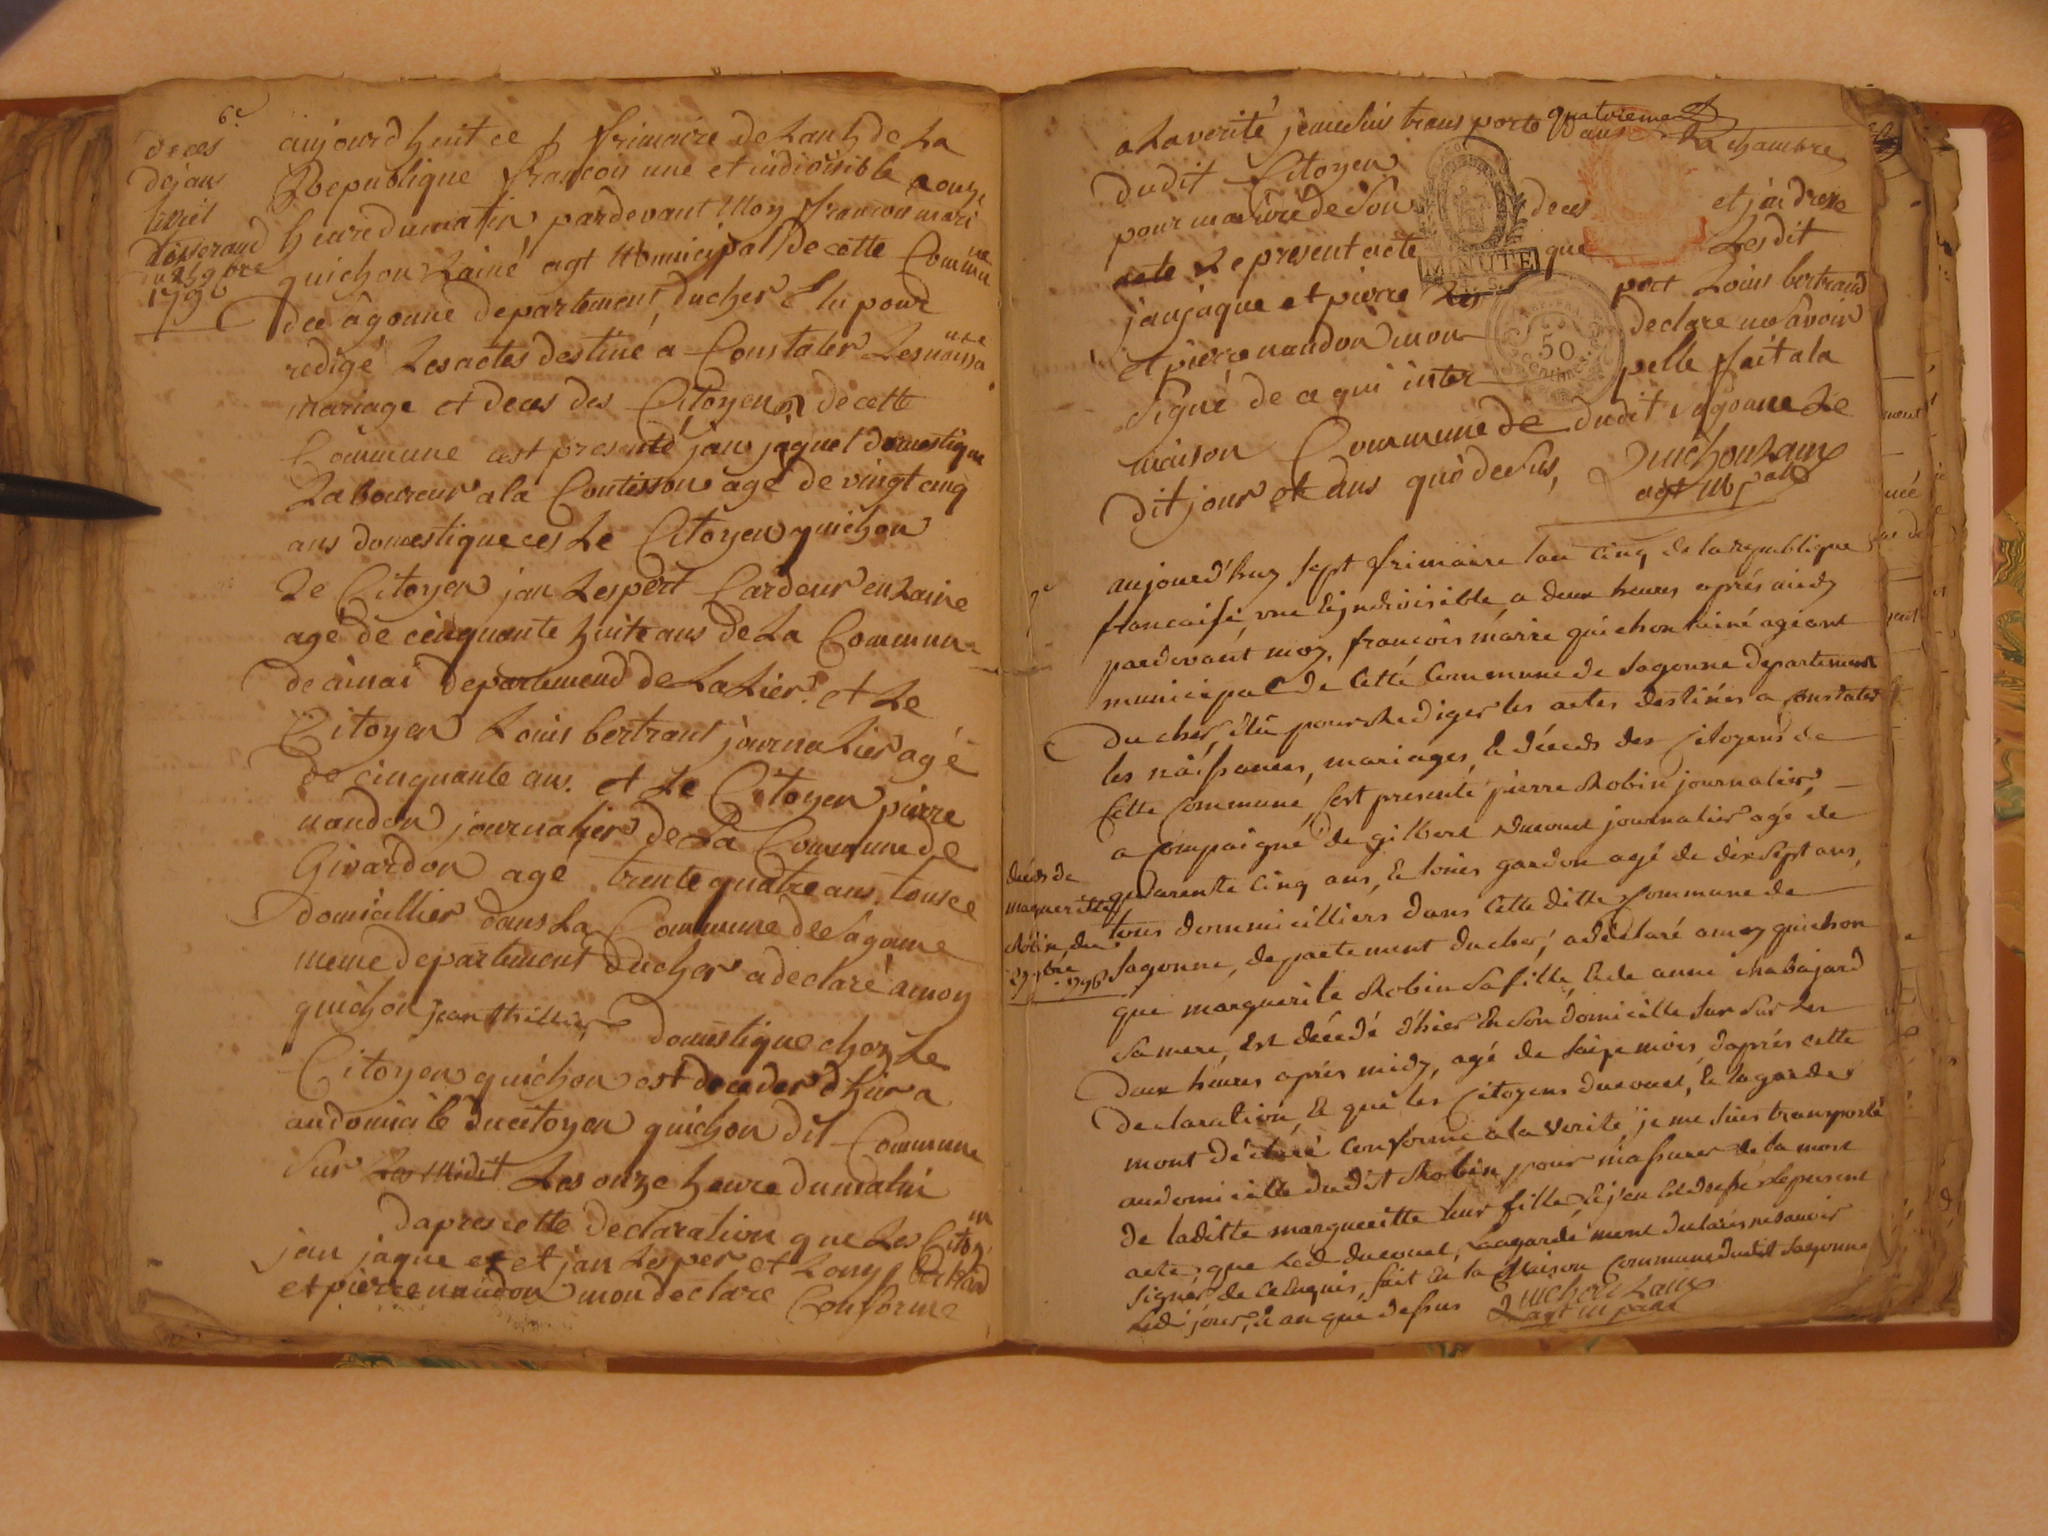 6e
deces
de jan
tisserand
1796
aujourd huit ce 5 frimaire de Lan 5 de La
Republique francois une et indivisible a onze
heure du matin pardevant Moy francois mari
guichon Lainé agt Municipal de cette Commune
de âgonne departement du cher Elu pour
redigé Les actes destiné a Constater Les naissance
mariage et deces des Citoyens de cette
Commune cest presenté jan jaque domestique
Laboureur a la Contisson age de vingt cinq
ans domestique ces Le Citoyen guichon
Le Citoyen jan Lespert Cardeur en Laine
age de cinquante huite ans de La Commun
de ainai departemend de La Lier. et Le
Citoyen Louis bertrant journalier agé
de cinquante ans. et Le Citoyen pierre
naudon journalier de La Commune de
Givardon age trente quatre ans tous ce
domicillier dans La Commune de Sagonne
meme departement du cher a declaré a moy
guichon jean domestique chez Le
Citoyen guichon est deceder d hier a
au domicile du citoyen guichon dit Commune
Sur Les onze heure du matin
dapres cette declaration que Les Citoyin
jan jaque et et jan Lesper et Louy bertrand
et pierre naudon mon declare Conforme
a La verité je me suis transporte quatrieme dans La chambre
dudit Citoyen
pour ma suré de Son deces et jai dresse
acte Le present acte que Les dit
jan jaque et pierre Les pert Louis bertrand
et pierre naudon mon declare ne Savoir
Signé de ce qui inter pelle fait a la
maison Commune de dudit Sagonne Le
dit jour et ans que desus,
Guichon Laine
agt Mpal
MINUTE
50
CENTIMES
7e
aujourd'huy sept frimaire lan cinq de la republique
francaise, une & indivisible, a deux heures aprés midy
pardevant moy, francois marie guichon lainé ageant
municipal de Cette Commune de Sagonne departement
du cher, Élu pour Rediger les actes destinés a Constater
les naissances, mariages, & décéds des Citoyens de
Cette Commune, sest presenté pierre Robin journalier,
a Compaigné de gilbert Ducouet journalier agé de
quarente cinq ans, & louis gardon agé de dix sept ans,
tous dommicilliers dans Cette ditte Commune de
Sagonne, departement du cher, a déclaré a moy guichon
que marguerite Robin Sa fille, & de anne chabajard
Sa mere, est décédé d'hier En Son domicille Sur Sur les
deux heures aprés midy, agé de Saize mois, daprés cette
déclaration, & que les Citoyens ducouet, & lagarde
mont déclaré Conforme a la verité je me Suis transporté
au domicille dudit Robin pour m'assurer de la mort
de laditte margueritte leur fille, & j'en ai dressé le present
acte, que led ducouet, Lagarde mont declarés ne Savoir
Signer de Ce Enquis, fait En la Maison Commune dudit Sagonne
Led jour, & an que dessus Guichon Laine
agt mpal
décéds de
margueritte
Robin, du
1796